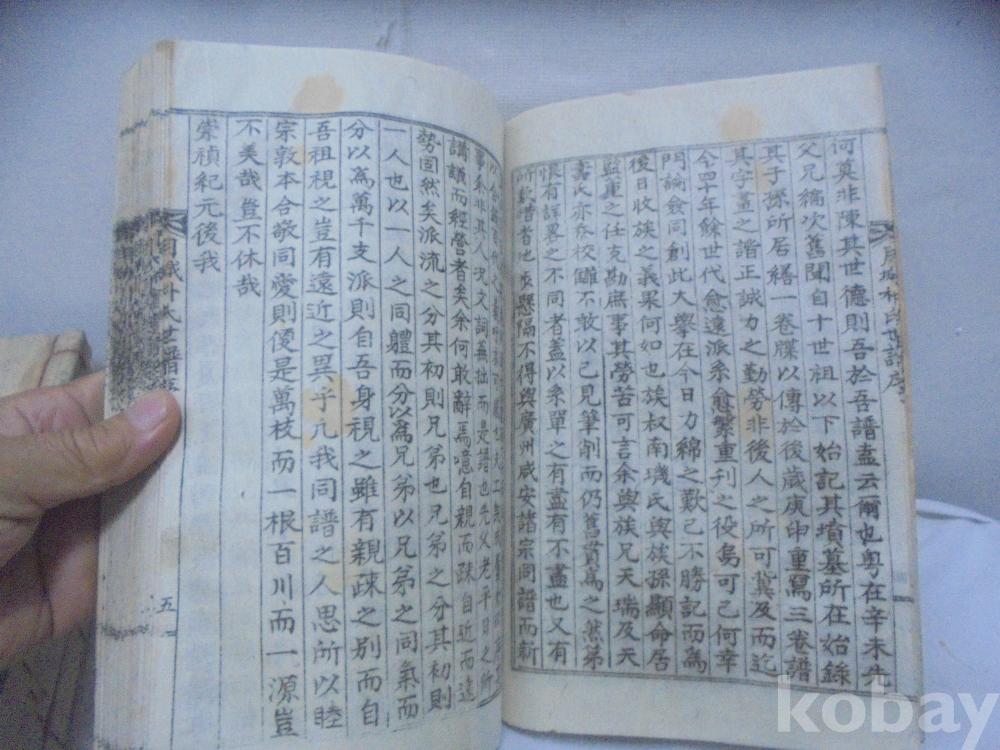 世譜序
何莫非陳其世德則吾於吾譜盍云爾也粤在辛未先
父兄編次舊聞自十世祖以下始記其墳墓所在始錄
其子孫所居繕一卷牒以傳於後歲庚申重寫三卷譜
其字畫之諧正誠力之勤勞非後人之所可冀及而迄
今四年餘世代愈遠派系愈繁重刊之役烏可已何幸
門論僉同創此大擧在今日力綿之歎已不勝記而爲
後日收族之義果何如也族叔南璣氏與族孫顯命居
監董之任克勘庶事其勞苦可言余與族兄天瑞及天
氏亦忝校讎不敢以己見筆削而仍舊貫爲之然第
恨有詳畧之不同者盖以系單之有盡有不盡也又有
所歎譜者地 懸隔不得與廣州咸安諸宗同譜而
事余非其人况文詞蕪拙而是譜也先父老平日之所
講議而經營者矣余何敢辭焉噫自親而疎自近而遠
勢固然矣派流之分其初則兄弟也兄弟之分其初則
一人也以一人之同軆而分以爲兄弟以兄弟之同氣而
分以爲萬千支派則自吾身視之雖有親疎之別而自
吾祖視之豈有遠近之異乎凡我同譜之人思所以睦
宗敦本合敬同愛則優是萬枝而一根百川而一源豈
不美哉豈不休哉
崇禎紀元後我
氏世譜序
五
kobay